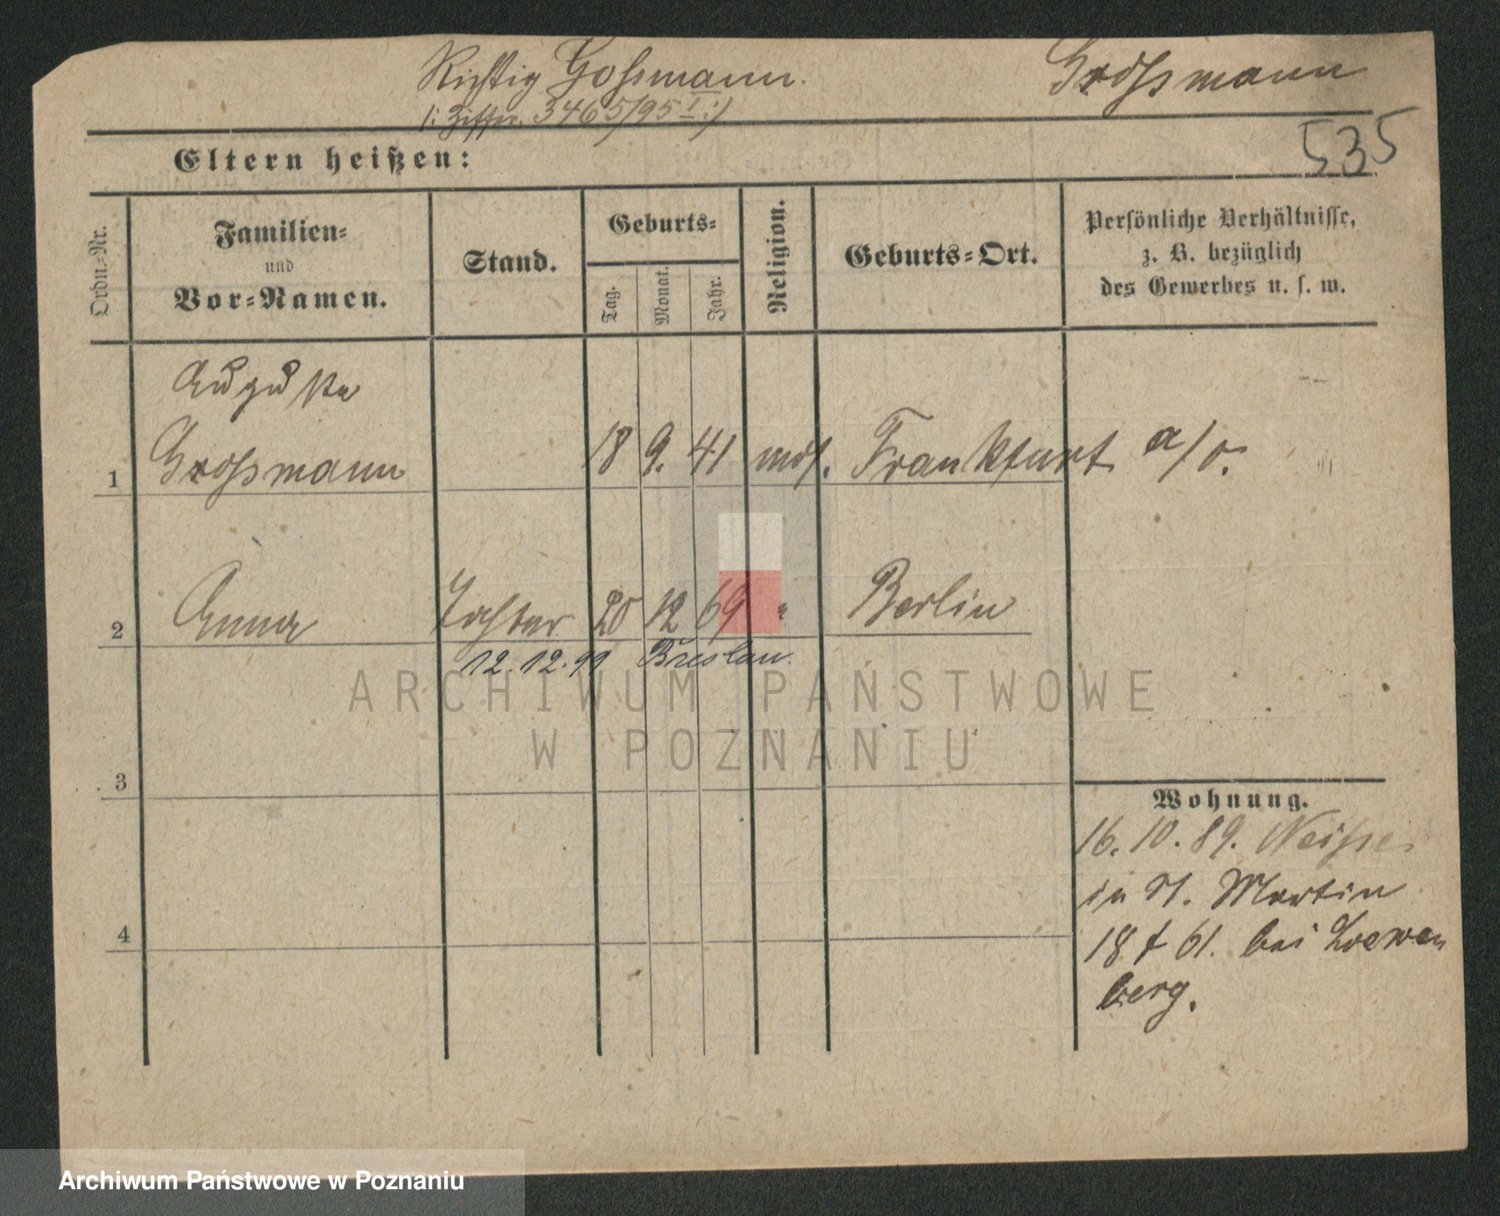 Richtig Goßmann. Großmann
/: Ziffer. 3465/95 I :/
535
Eltern heißen:
Ordn.-Nr. Familien- und Vor-Namen. Stand. Geburts- Tag. Monat. Jahr. Religion. Geburts-Ort. Persönliche Verhältnisse, z. B. bezüglich des Gewerbes u. s. w.
Auguste
1 Großmann 18 9. 41 mos. Frankfurt a/O.
2 Anna Tochter 20 12 69 " Berlin
12.12.91 Breslau.
3
Wohnung.
16. 10. 89. Neisse
in St. Martin
4
18 f 61. bei Loewen
berg.
ARCHIWUM PAŃSTWOWE
W POZNANIU
Archiwum Państwowe w Poznaniu